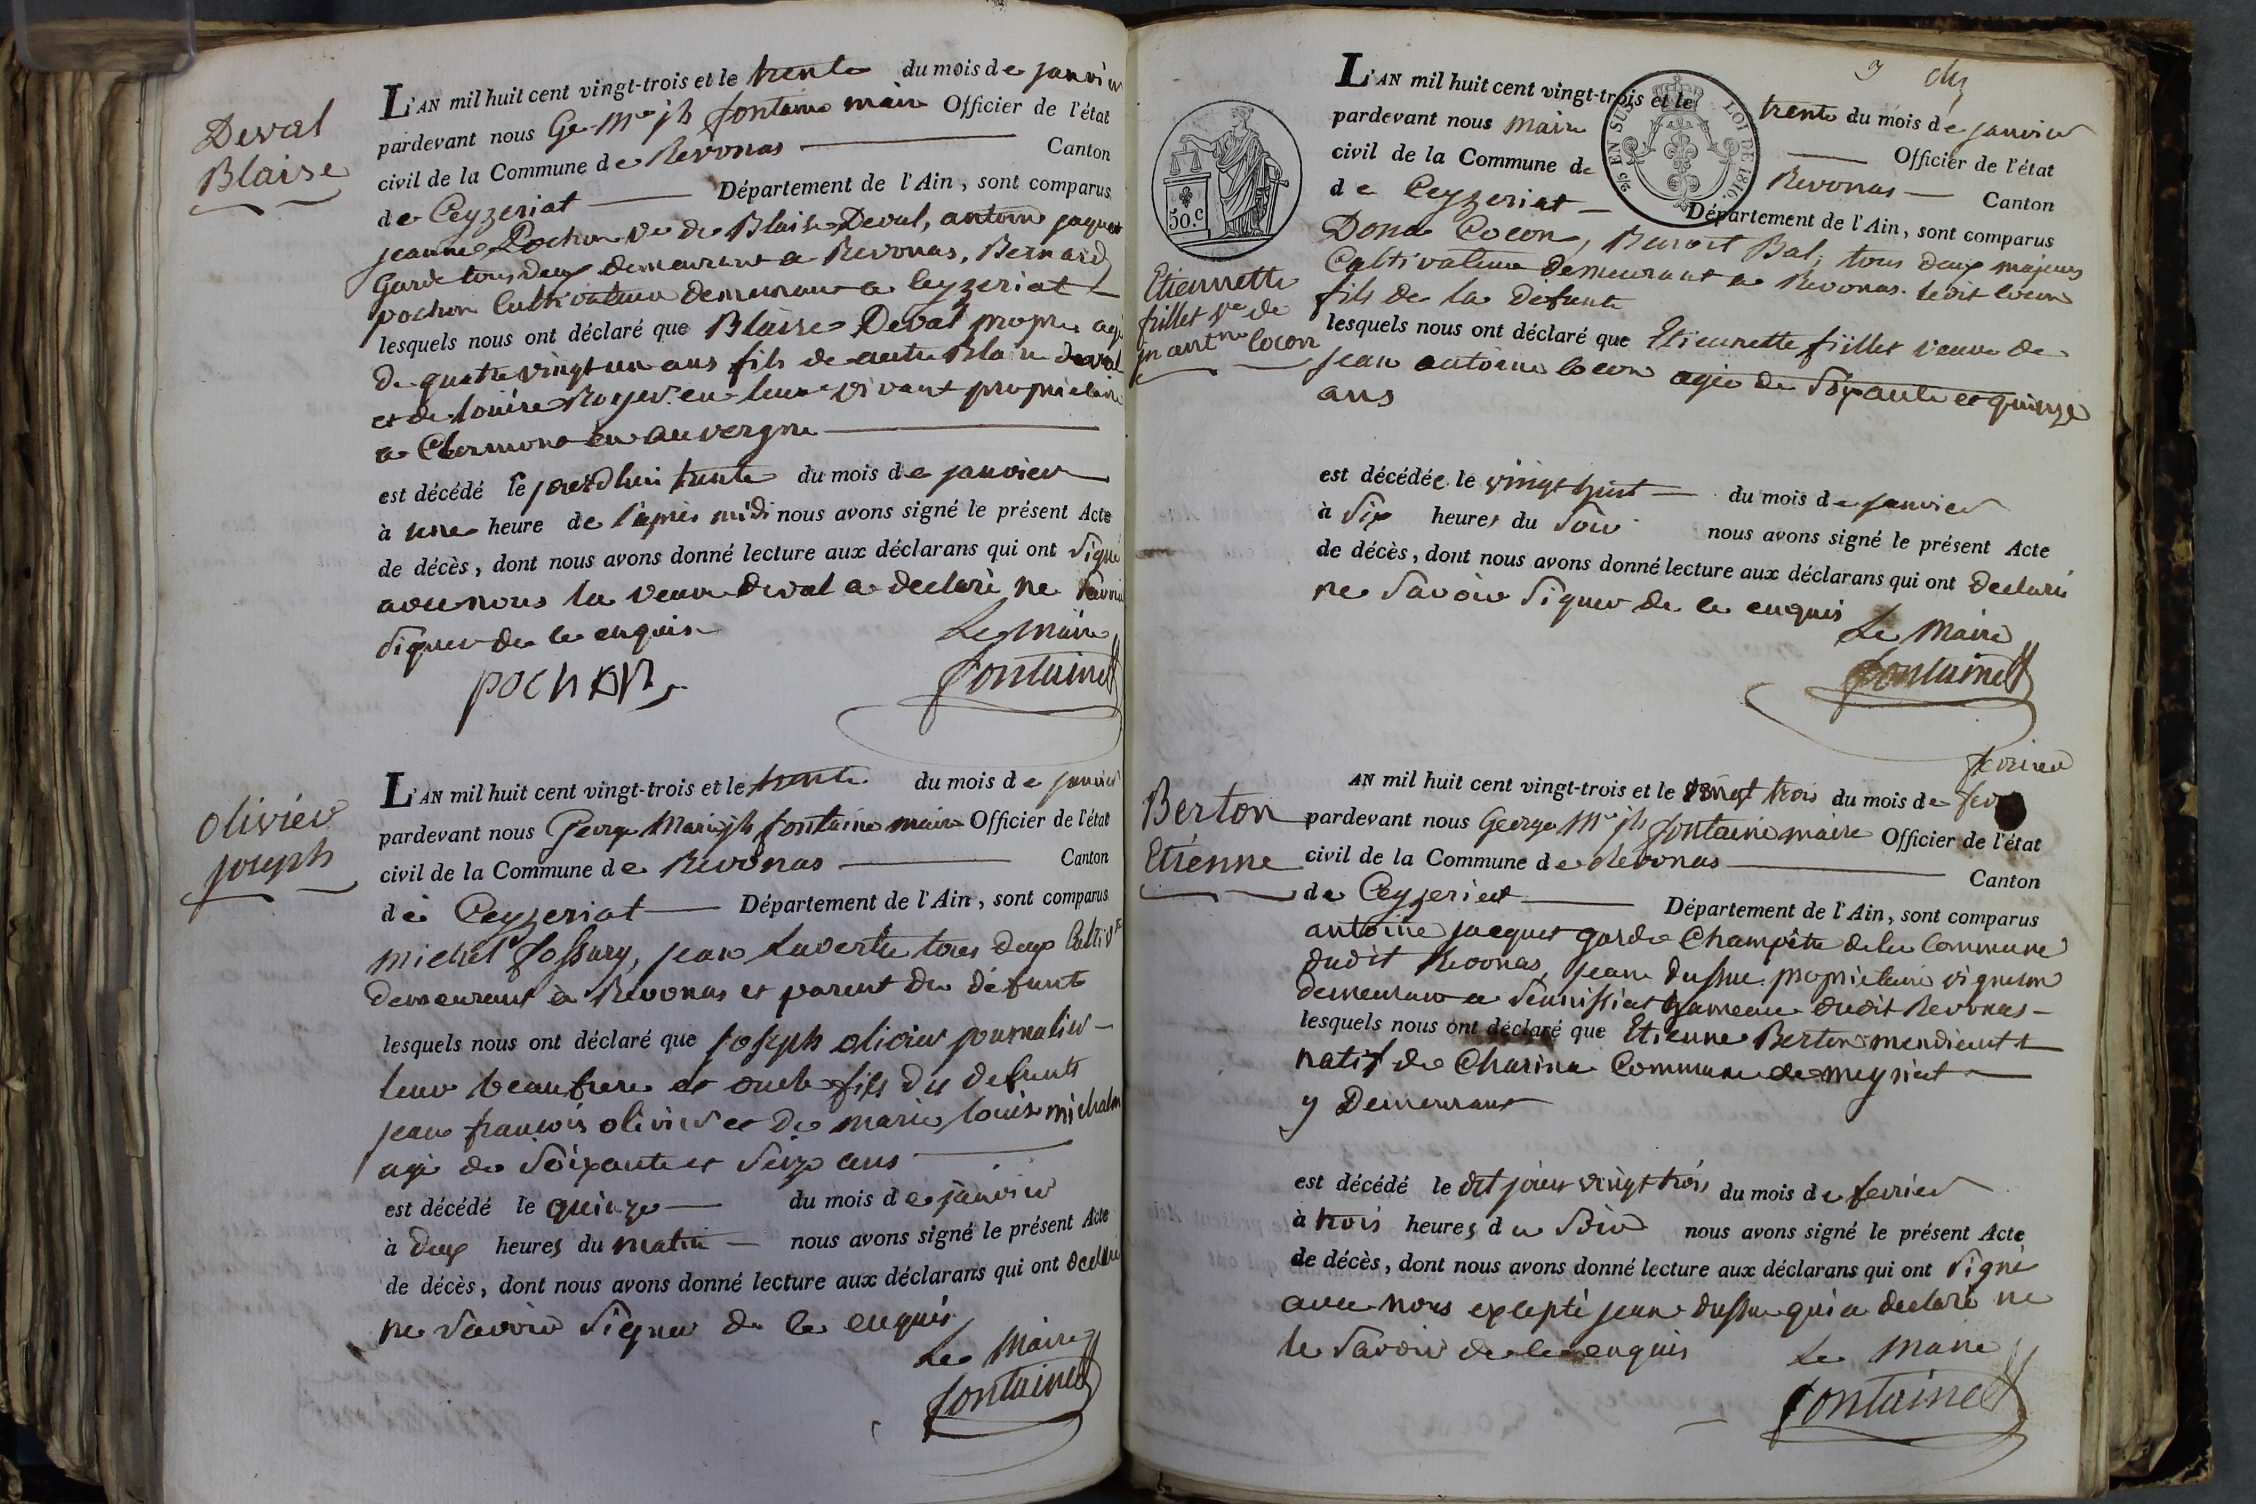 Deval
Blaise
L'AN mil huit cent vingt-trois et le trente du mois de janvier
pardevant nous Ge Mie jh fontaine maire Officier de l'état
civil de la Commune de Revonas Canton
de Ceyzeriat Département de l'Ain, sont comparus
jeanne Pochon ve de Blaise Deval, antoine jaques
Garde tous deux demeurant a Revonas, Bernard
pochon Cultivateur demeurant a Ceyzeriat
lesquels nous ont déclaré que Blaise Deval propre agé
de quatre vingt un ans fils de autre Blaise deval
et de louise Royer en leur vivant proprietaire
a Clermont en auvergne
est décédé le jourd'hui trente du mois de janvier
à une heure de l'après midi nous avons signé le présent Acte
de décès, dont nous avons donné lecture aux déclarans qui ont signé
avec nous la veuve Deval a declaré ne savoir
signer de ce enquise
Le Maire
pochon
fontaine
olivier
joseph
L'AN mil huit cent vingt-trois et le trente du mois de janvier
pardevant nous George Marie jh fontaine maire Officier de l'état
civil de la Commune de Revonas Canton
de Ceyzeriat Département de l'Ain, sont comparus
michel fossury, jean Laverte tous deux Cultivrs
demeurant à Revonas et parent du défunt
lesquels nous ont déclaré que joseph olivier journalier
leur beaufrere et oncle fils du defunts
jean françois olivier et de marie louise michalon
agé de soixante et seize ans
est décédé le quinze du mois de janvier
à deux heures du matin nous avons signé le présent Acte
de décès, dont nous avons donné lecture aux déclarans qui ont declaré
ne savoir signer de ce enquis
Le Maire
fontaine
30 EN SUS
LOI DE 1816.
50.c
L'AN mil huit cent vingt-trois et le trente du mois de janvier
pardevant nous Maire Officier de l'état
civil de la Commune de Revonas Canton
de Ceyzeriat Département de l'Ain, sont comparus
Etiennette
fillet ve de
jn antne Cocon
Dona Cocon, Benoit Bal, tous deux majeurs
Cultivateur demeurant a Revonas. ledit Cocon
fils de la défunte
lesquels nous ont déclaré que Etiennette fillet veuve de
jean antoine Cocon agée de soixante et quinze
ans
est décédée le vingt huit du mois de janvier
à six heures du soir nous avons signé le présent Acte
de décès, dont nous avons donné lecture aux déclarans qui ont declaré
ne savoir signer de ce enquis
Le Maire
fontaine
Berton
Etienne
fevrier
AN mil huit cent vingt-trois et le vingt trois du mois de
pardevant nous George Mie jh fontaine maire Officier de l'état
civil de la Commune de Revonas Canton
de Ceyzeriat Département de l'Ain, sont comparus
antoine jacques garde Champêtre de la Commune
dudit Revonas, jean dussue proprietaire vigneron
demeurant a Sennissiat hameau dudit Revonas
lesquels nous ont déclaré que Etienne Berton mendiant
natif de Charina Commune de meyriat
y Demeurant
est décédé le dit jour vingt trois du mois de fevrier
à trois heures du soir nous avons signé le présent Acte
de décès, dont nous avons donné lecture aux déclarans qui ont signé
avec nous excepté jean dussue qui a declaré ne
le savoir de ce enquis
Le Maire
fontaine